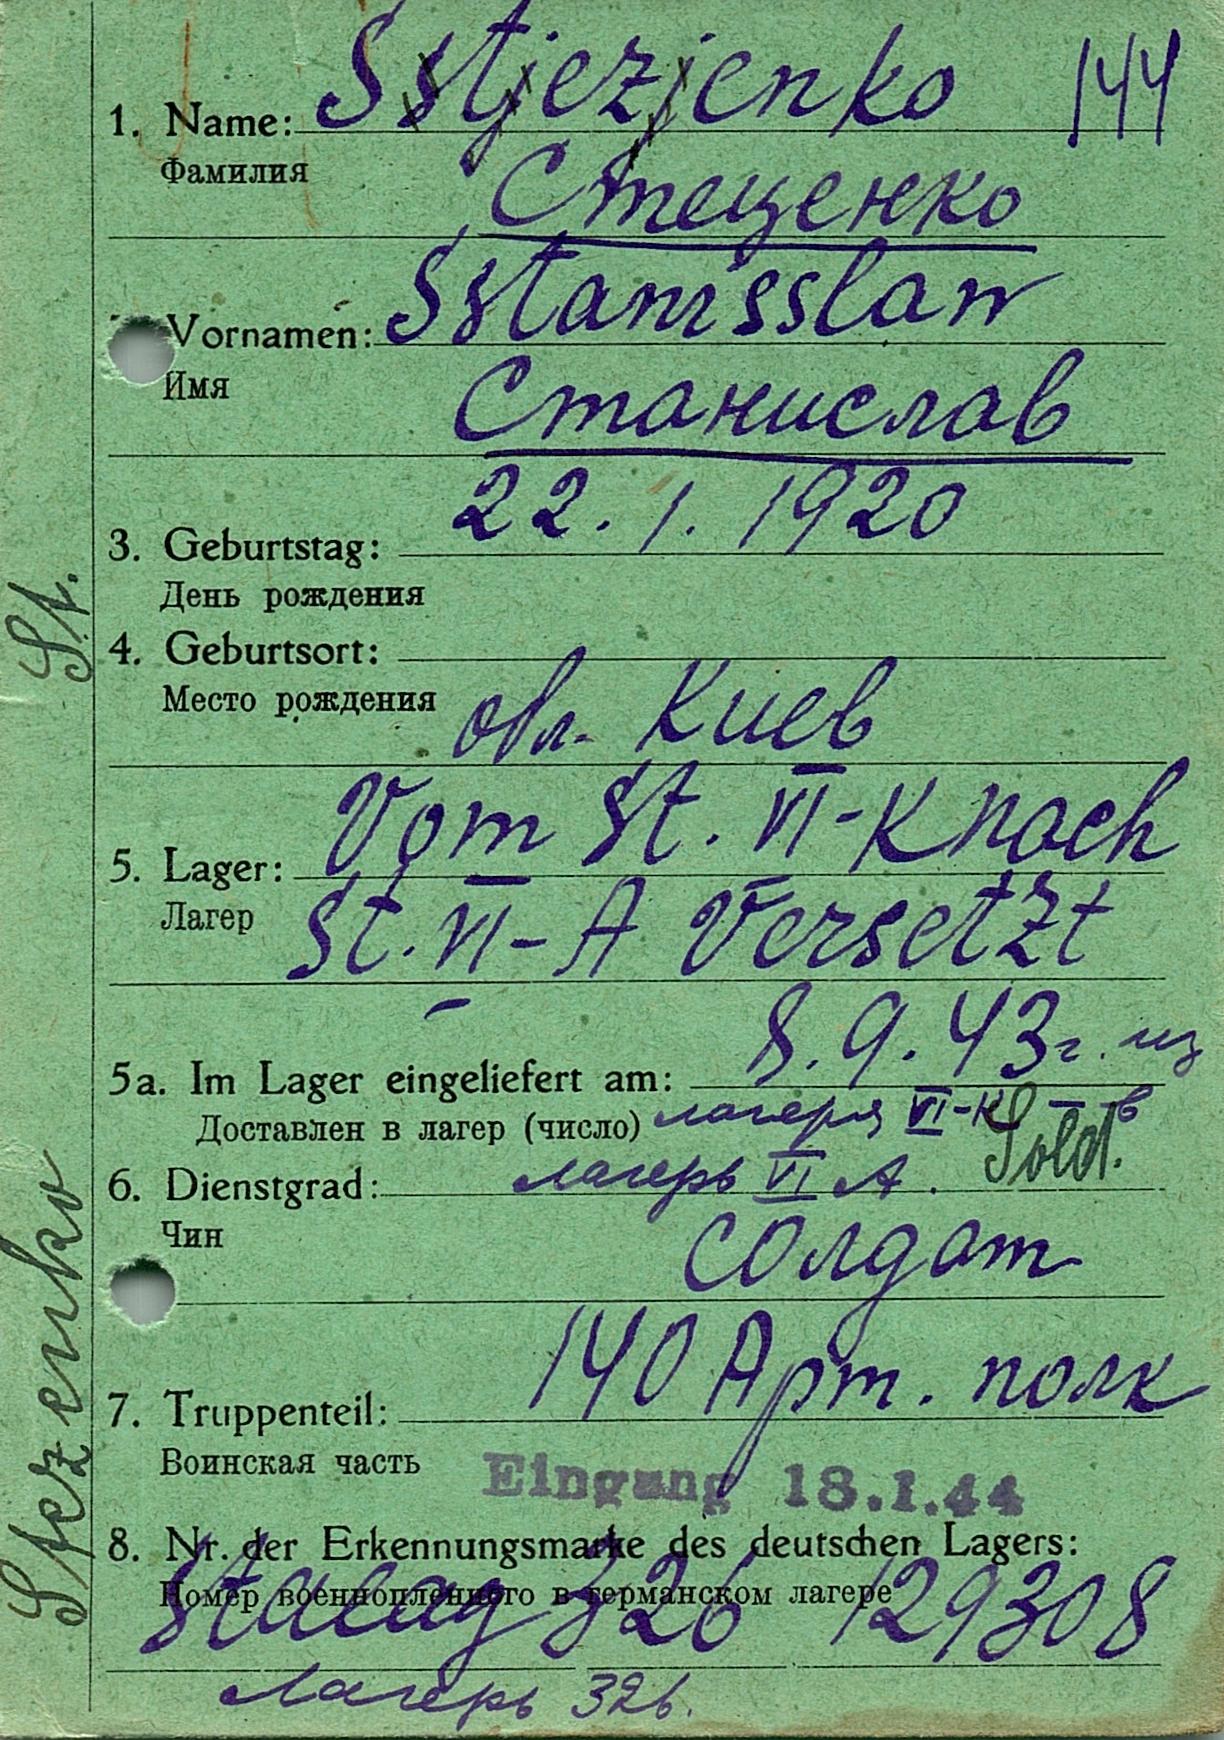 Sstjezjenko 144
1. Name:
Фамилия
Стеценко
Sstanisslaw
Vornamen:
Имя
Станислав
22. 1. 1920
3. Geburtstag:
День рождения
4. Geburtsort:
Место рождения
обл. Киев
Vom St. VI-K nach
5. Lager:
Лагер
St. VI-A Versetzt
8. 9. 43 г. из
5a. Im Lager eingeliefert am:
Доставлен в лагер (число) лагеря VI-K – в
Sold.
6. Dienstgrad: лагерь VI A.
Чин
солдат
140 Арт. полк
7. Truppenteil:
Воинская часть
Eingang 18.I.44
8. Nr. der Erkennungsmarke des deutschen Lagers:
Номер военнопленного в германском лагере
Stalag 326 129308
лагерь 326.
Stezenko St.